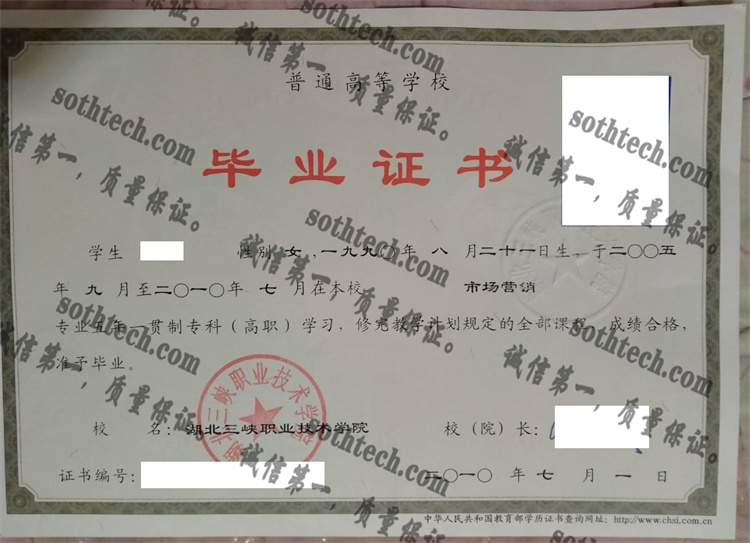 普通高等学校
毕业证书
学生 性别 女,一九九〇年 八 月二十一日生,于二〇〇五
年 九 月至二〇一〇年 七 月在本校 市场营销
专业五年一贯制专科(高职)学习,修完教学计划规定的全部课程,成绩合格,
准予毕业。
校 名:湖北三峡职业技术学院
校(院)长:
证书编号:
二〇一〇 年 七 月 一 日
中华人民共和国教育部学历证书查询网址:http://www.chsi.com.cn
湖北三峡职业技术学院
sothtech.com
诚信第一,质量保证。
sothtech.com
诚信第一,质量保证。
sothtech.com
诚信第一,质量保证。
sothtech.com
诚信第一,质量保证。
sothtech.com
诚信第一,质量保证。
sothtech.com
诚信第一,质量保证。
sothtech.com
诚信第一,质量保证。
sothtech.com
诚信第一,质量保证。